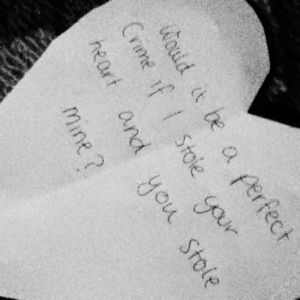 Would it be a perfect
Crime if I stole your
heart and you stole
mine?